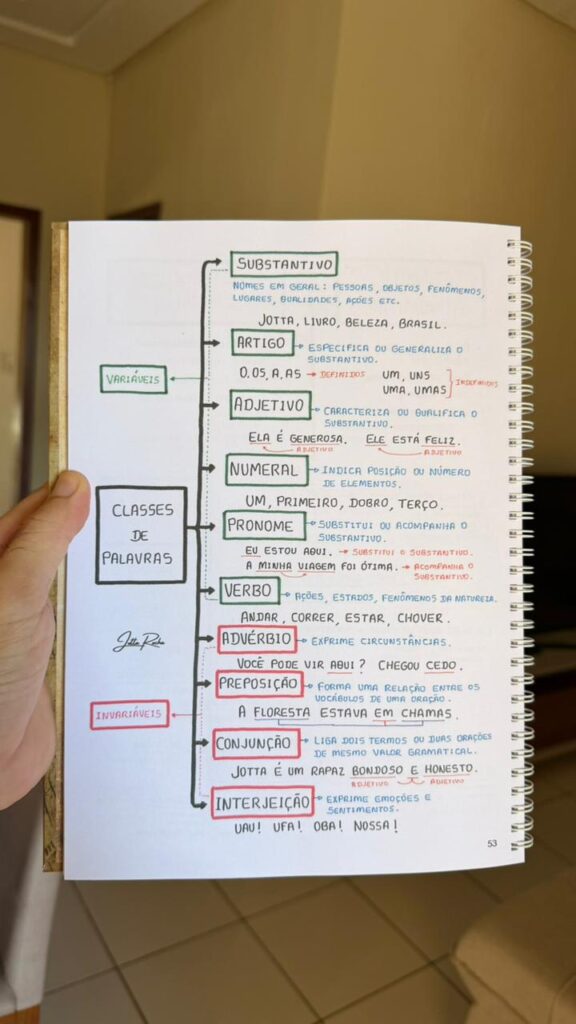 SUBSTANTIVO
NOMES EM GERAL: PESSOAS, OBJETOS, FENÔMENOS,
LUGARES, QUALIDADES, AÇÕES ETC.
JOTTA, LIVRO, BELEZA, BRASIL.
ARTIGO
ESPECIFICA OU GENERALIZA O
SUBSTANTIVO.
O, OS, A, AS → DEFINIDOS UM, UNS
UMA, UMAS INDEFINIDOS
VARIÁVEIS
ADJETIVO
CARACTERIZA OU QUALIFICA O
SUBSTANTIVO.
ELA É GENEROSA. ELE ESTÁ FELIZ.
ADJETIVO ADJETIVO
NUMERAL
INDICA POSIÇÃO OU NÚMERO
DE ELEMENTOS.
UM, PRIMEIRO, DOBRO, TERÇO.
CLASSES
DE
PALAVRAS
PRONOME
SUBSTITUI OU ACOMPANHA O
SUBSTANTIVO.
EU ESTOU AQUI. → SUBSTITUI O SUBSTANTIVO.
A MINHA VIAGEM FOI ÓTIMA. → ACOMPANHA O
SUBSTANTIVO.
VERBO
AÇÕES, ESTADOS, FENÔMENOS DA NATUREZA.
ANDAR, CORRER, ESTAR, CHOVER.
ADVÉRBIO
EXPRIME CIRCUNSTÂNCIAS.
VOCÊ PODE VIR AQUI? CHEGOU CEDO.
PREPOSIÇÃO
FORMA UMA RELAÇÃO ENTRE OS
VOCÁBULOS DE UMA ORAÇÃO.
A FLORESTA ESTAVA EM CHAMAS.
INVARIÁVEIS
CONJUNÇÃO
LIGA DOIS TERMOS OU DUAS ORAÇÕES
DE MESMO VALOR GRAMATICAL.
JOTTA É UM RAPAZ BONDOSO E HONESTO.
ADJETIVO ADJETIVO
INTERJEIÇÃO
EXPRIME EMOÇÕES E
SENTIMENTOS.
UAU! UFA! OBA! NOSSA!
53